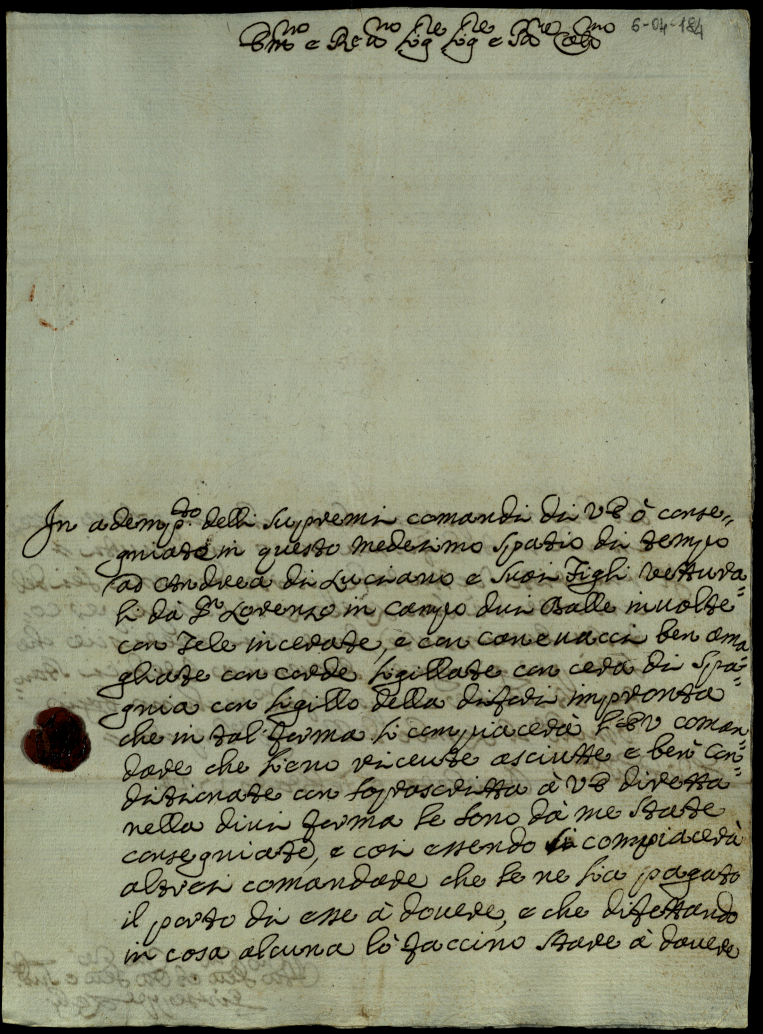 Em.no e Re.mo Sig.re Sig.re e P̄ne Col.mo
6-04-184
In ademp.to delli supremi comandi di VE ò conse=
gniate in questo medesimo spatio di tempo
ad Andrea di Luciano e suoi Figli vettura=
li da S.n Lorenzo in campo dui Balle involte
con Tele incerate, e con canevacci ben ama=
gliate con corde sigillate con cera di Spa=
gnia con sigillo della di fori impronta
che in tal forma si compiacerà l'EV coman=
dare che sieno riceute asciutte e ben con=
ditionate con soprascritta à VE diretta
nella dui forma se sono da me state
consegniate, e così essendo si compiacerà
altresi comandare che se ne sia pagato
il porto di esse à dovere, e che difettando
in cosa alcuna lò faccino stare à dovere